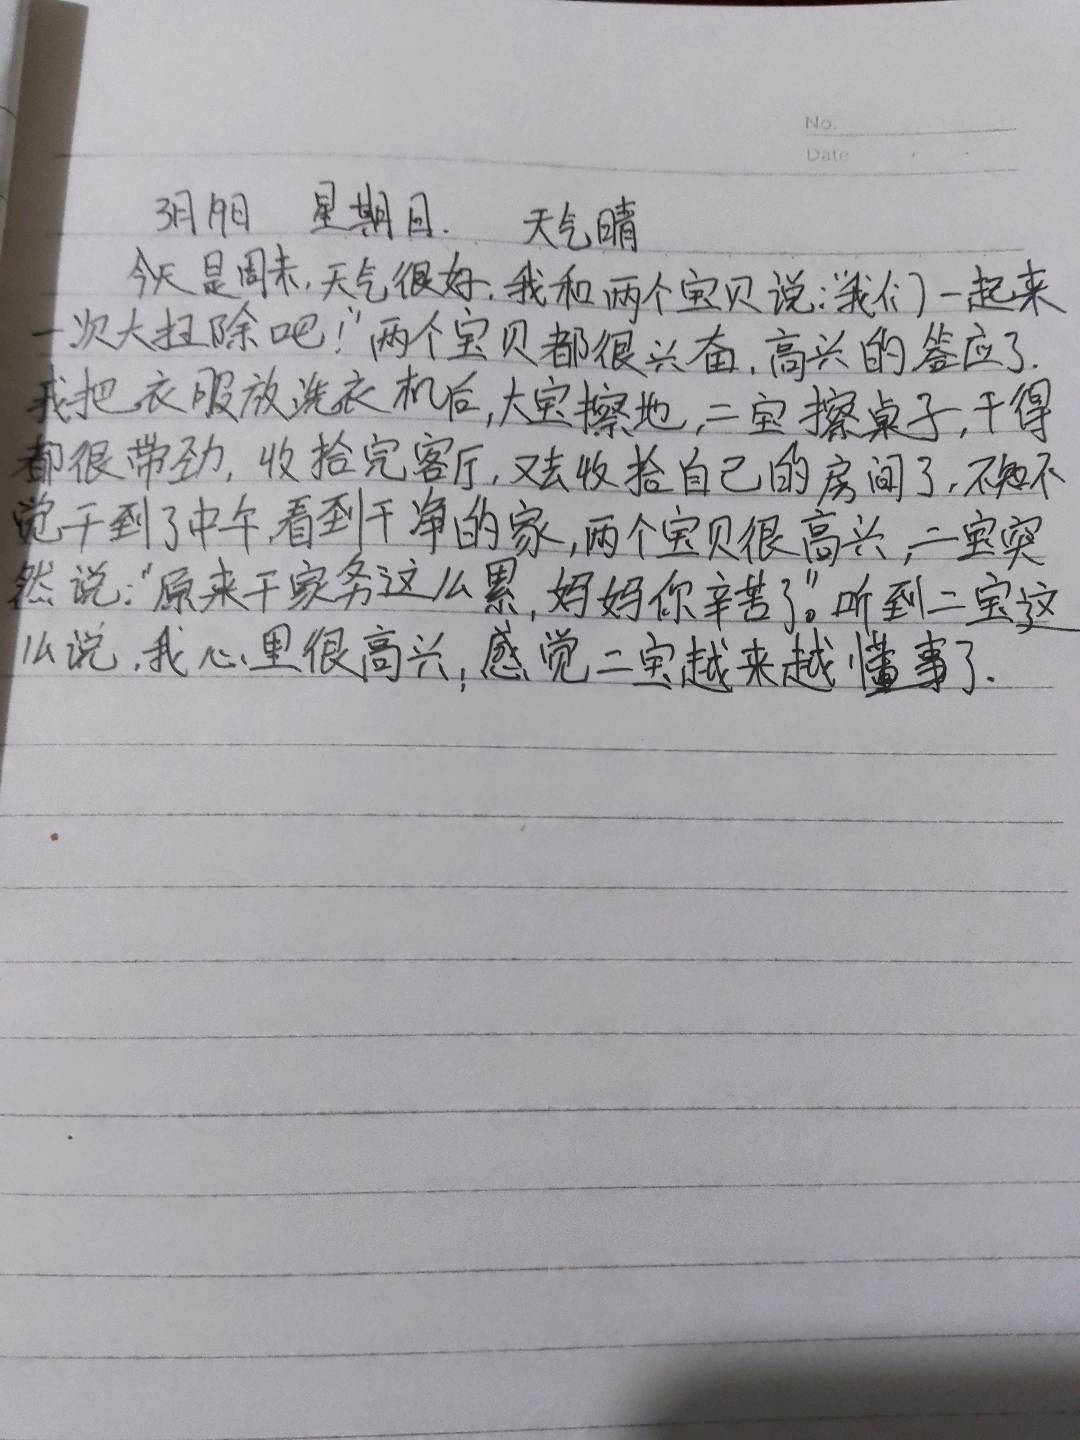 No.
Date
3月19日 星期日. 天气晴
今天是周末,天气很好,我和两个宝贝说:“我们一起来
一次大扫除吧!”两个宝贝都很兴奋,高兴的答应了.
我把衣服放洗衣机后,大宝擦地,二宝擦桌子,干得
都很带劲,收拾完客厅,又去收拾自己的房间了,不知不
觉干到了中午,看到干净的家,两个宝贝很高兴,二宝突
然说:“原来干家务这么累,妈妈你辛苦了”。听到二宝这
么说,我心里很高兴,感觉二宝越来越懂事了.